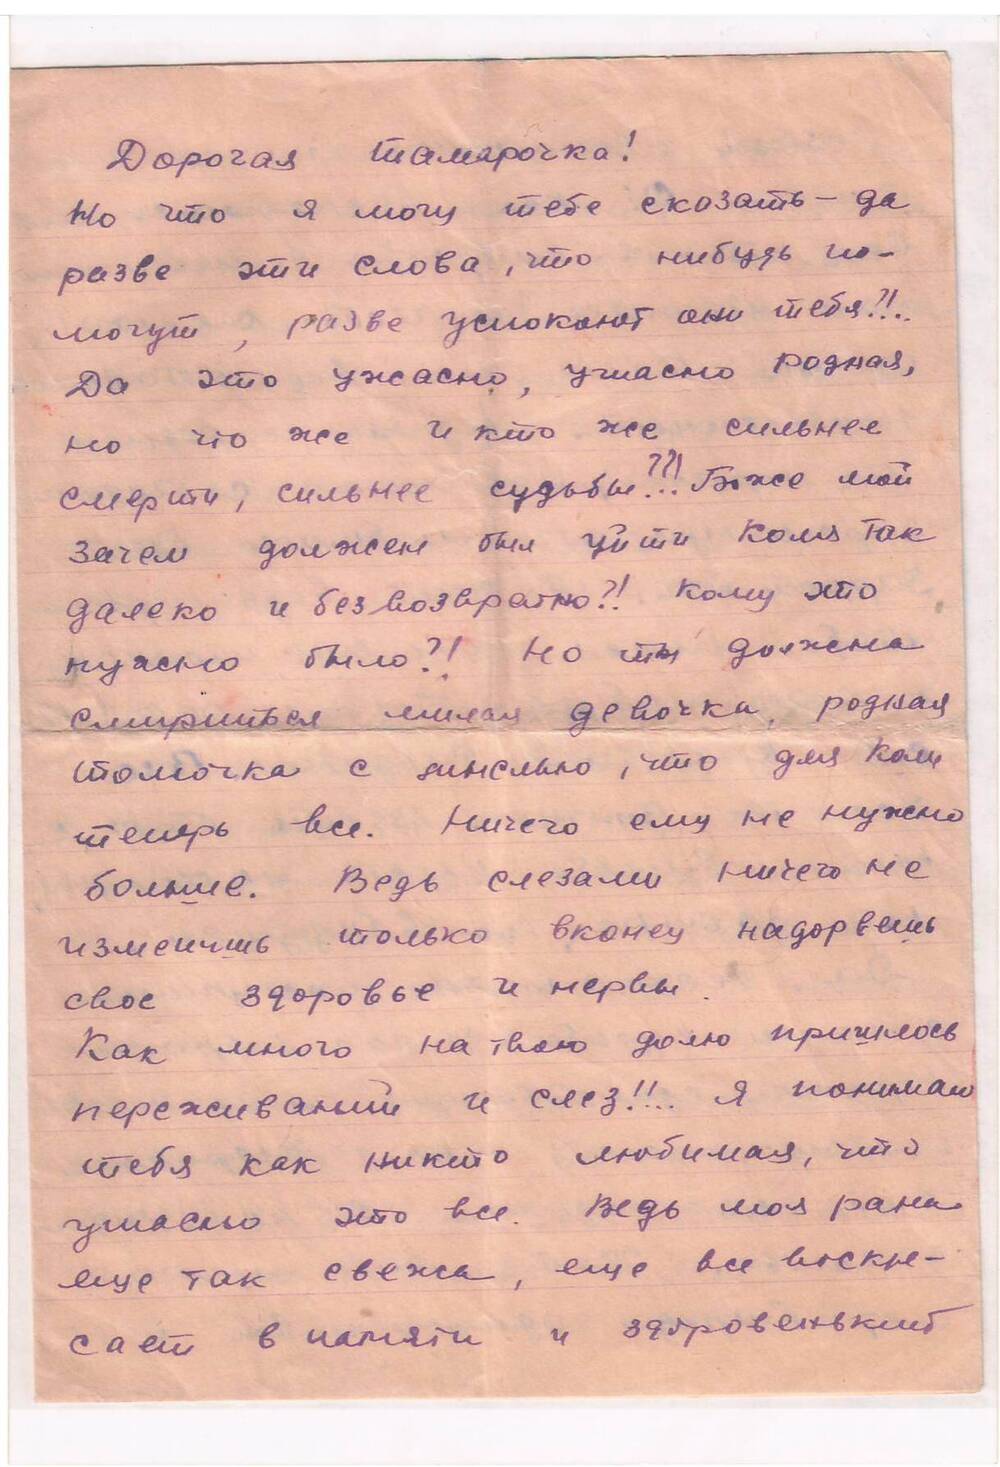 Дорогая Тамарочка!
Но что я могу тебе сказать – да
разве эти слова, что нибудь по-
могут, разве успокоют они тебя?!..
Да это ужасно, ужасно родная,
но что же и кто же сильнее
смерти, сильнее судьбы??!.. Боже мой
зачем должен был уйти Коля так
далеко и безвозвратно?! Кому это
нужно было?! Но ты должна
смириться милая девочка, родная
Томочка с мыслью, что для Коли
теперь все. Ничего ему не нужно
больше. Ведь слезами ничего не
изменишь только вконец надорвешь
свое здоровье и нервы.
Как много на твою долю пришлось
переживаний и слез!!... Я понимаю
тебя как никто любимая, что
ужасно это все. Ведь моя рана
еще так свежа, еще все воскре-
сает в памяти и здоровенький